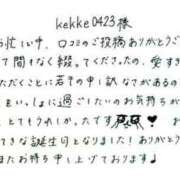 kekke0423様
お忙しい中、口コミのご投稿ありがとうご
て間もなく綴ってくださったの、愛すぎ
ただくことに若干の申し訳なさがあるの
もいっしょに過ごしたいのお気持ちが
とてもうれしかったです
てきな誕生日となりました！ありがとう
またお待ち申し上げております♩